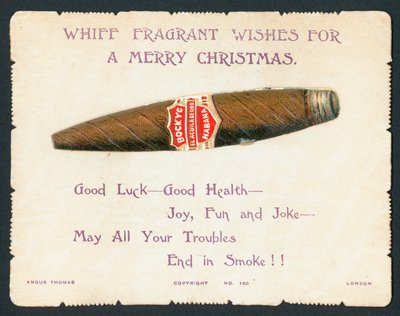 WHIFF FRAGRANT WISHES FOR
A MERRY CHRISTMAS.
BOCK Y Cº
EL AGUILA DE ORO
HABANA
Good Luck—Good Health—
Joy, Fun and Joke—
May All Your Troubles
End in Smoke!!
ANGUS THOMAS COPYRIGHT NO. 160 LONDON